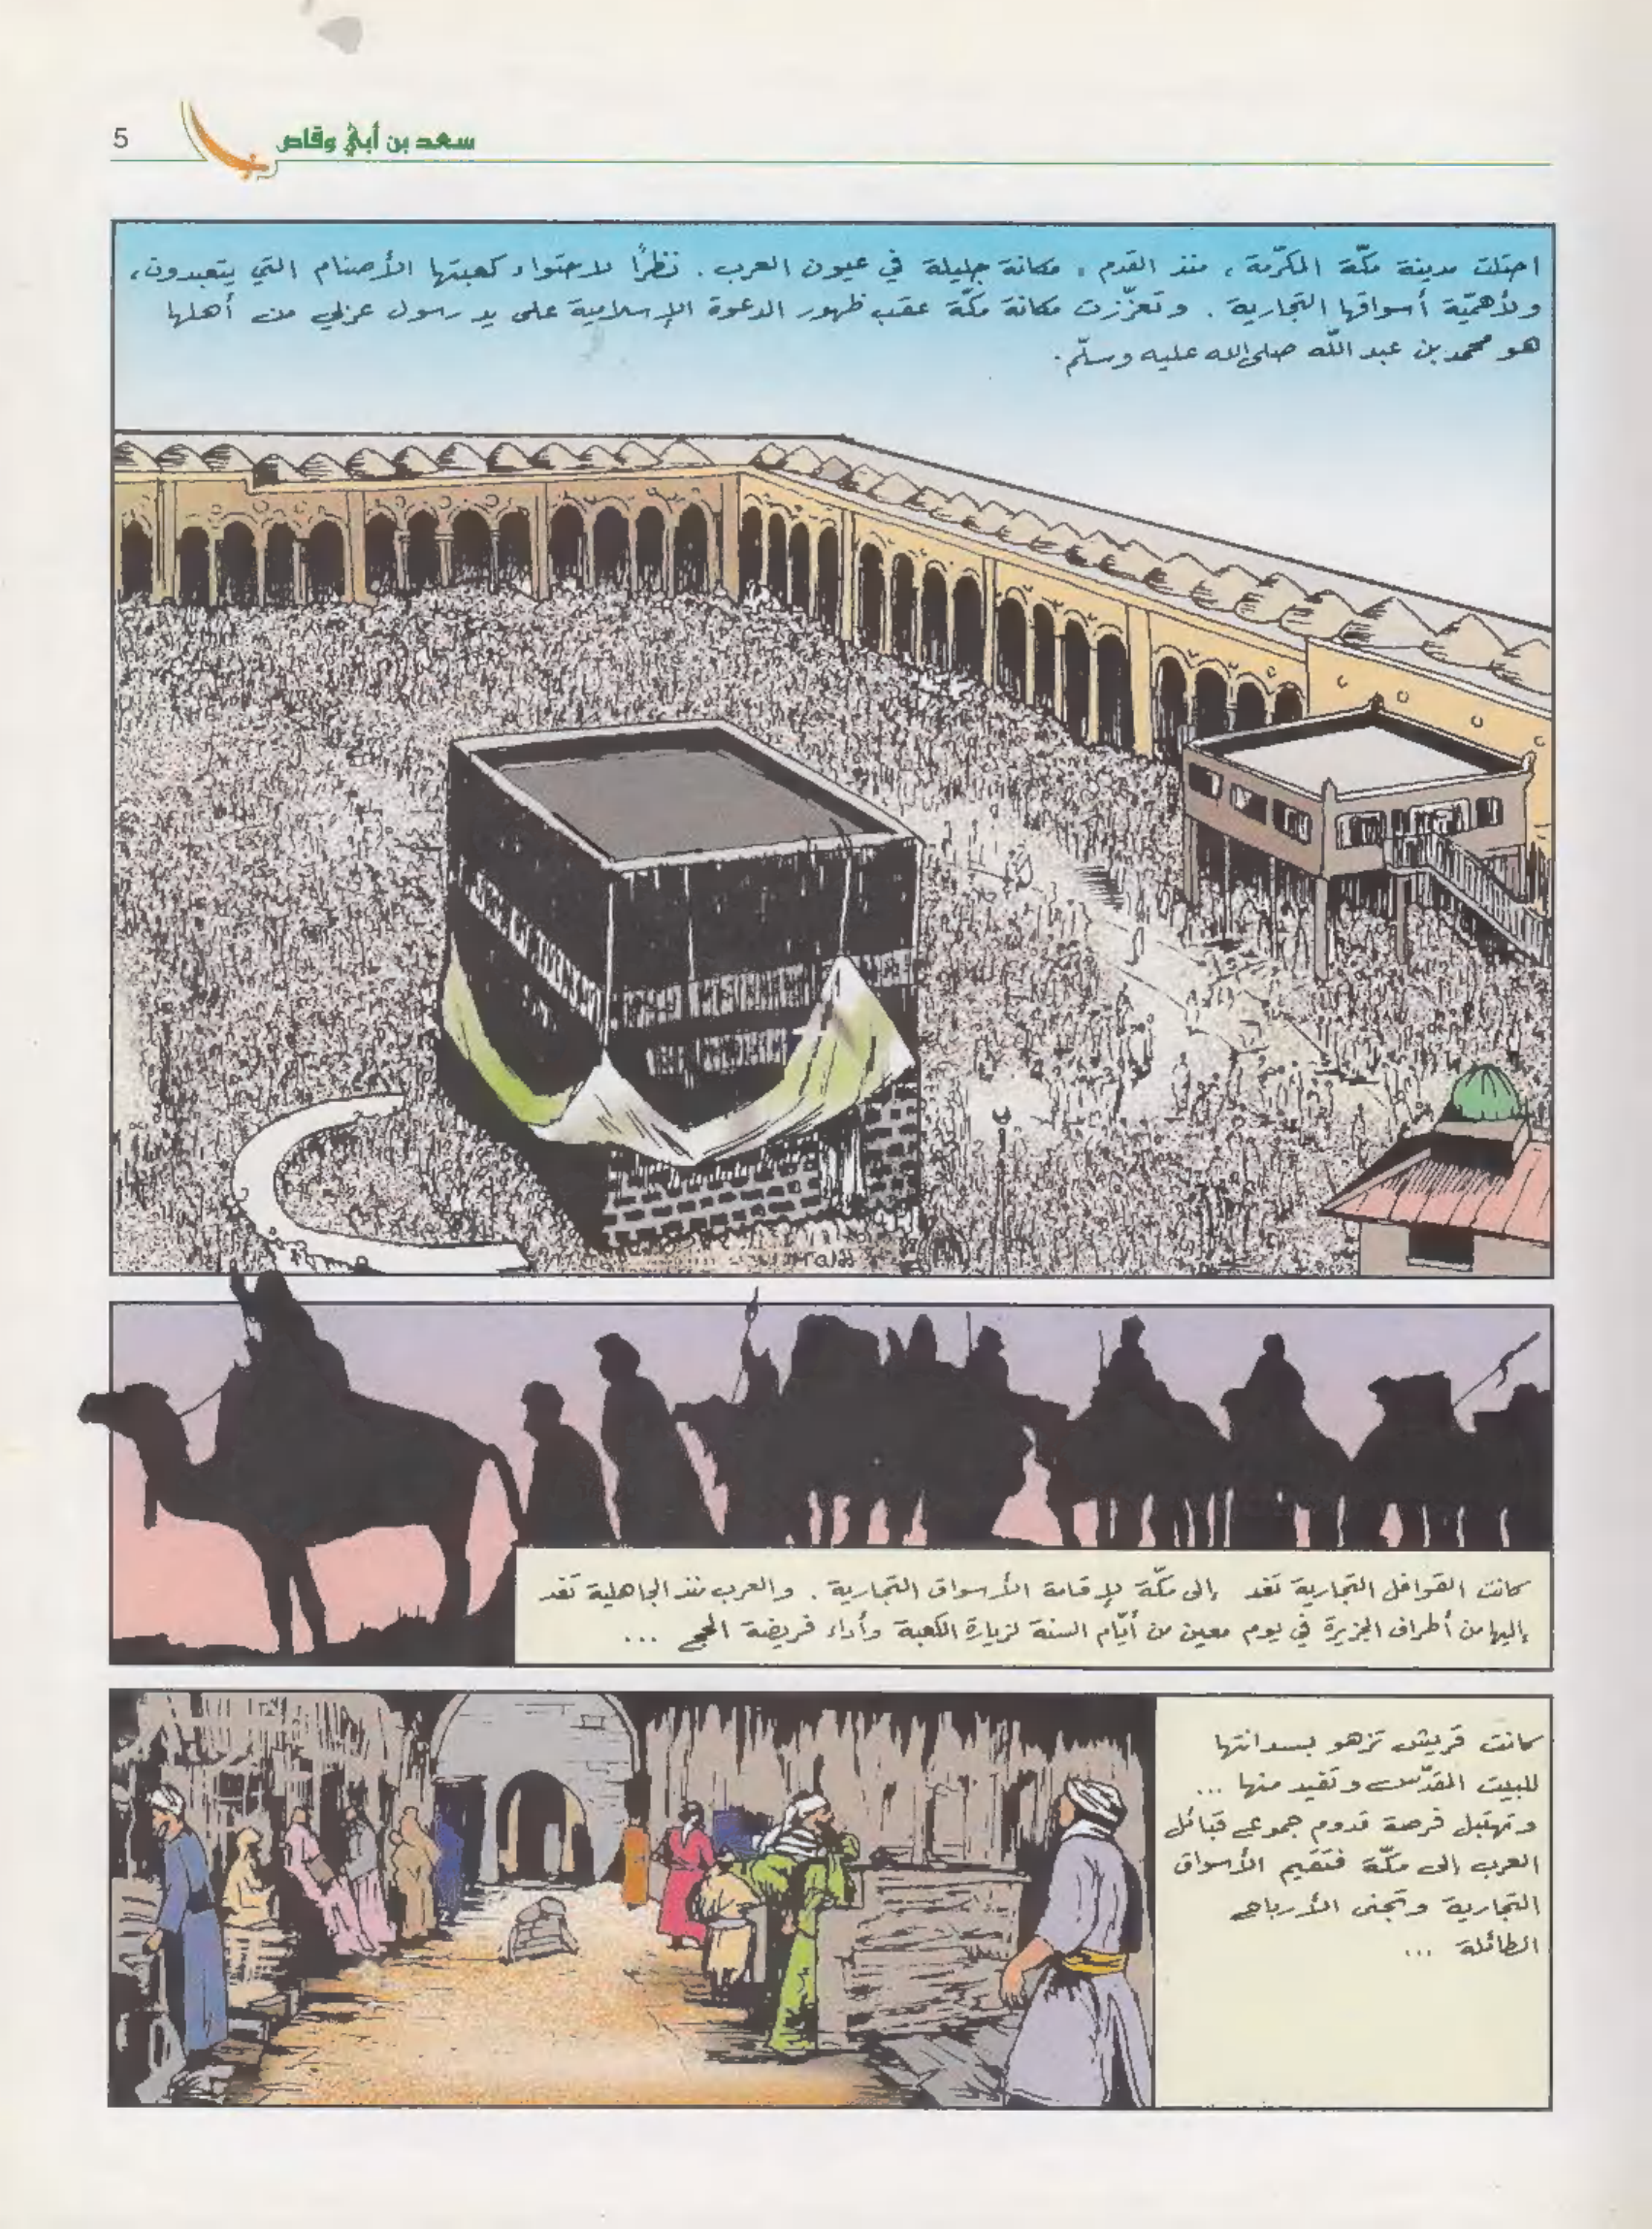 سعد بن أبي وقاص
5
احتلت مدينة مكّة المكرّمة، منذ القدم، مكانة جليلة في عيون العرب. نظرًا لاحتواء كعبتها الأصنام التي يتعبدون،
ولأهميّة أسواقها التجارية. وتعزّزت مكانة مكّة عقب ظهور الدعوة الإسلامية على يد رسول عربي من أهلها
هو محمد بن عبد اللّه صلى الله عليه وسلّم.
كانت القوافل التجارية تفد إلى مكّة لإقامة الأسواق التجارية. والعرب منذ الجاهلية تفد
إليها من أطراف الجزيرة في يوم معين من أيّام السنة لزيارة الكعبة وأداء فريضة الحج ...
كانت قريش تزهو بسدانتها
للبيت المقدّس وتفيد منها ...
وتهتبل فرصة قدوم جموع قبائل
العرب إلى مكّة فتقيم الأسواق
التجارية وتجني الأرباح
الطائلة ...